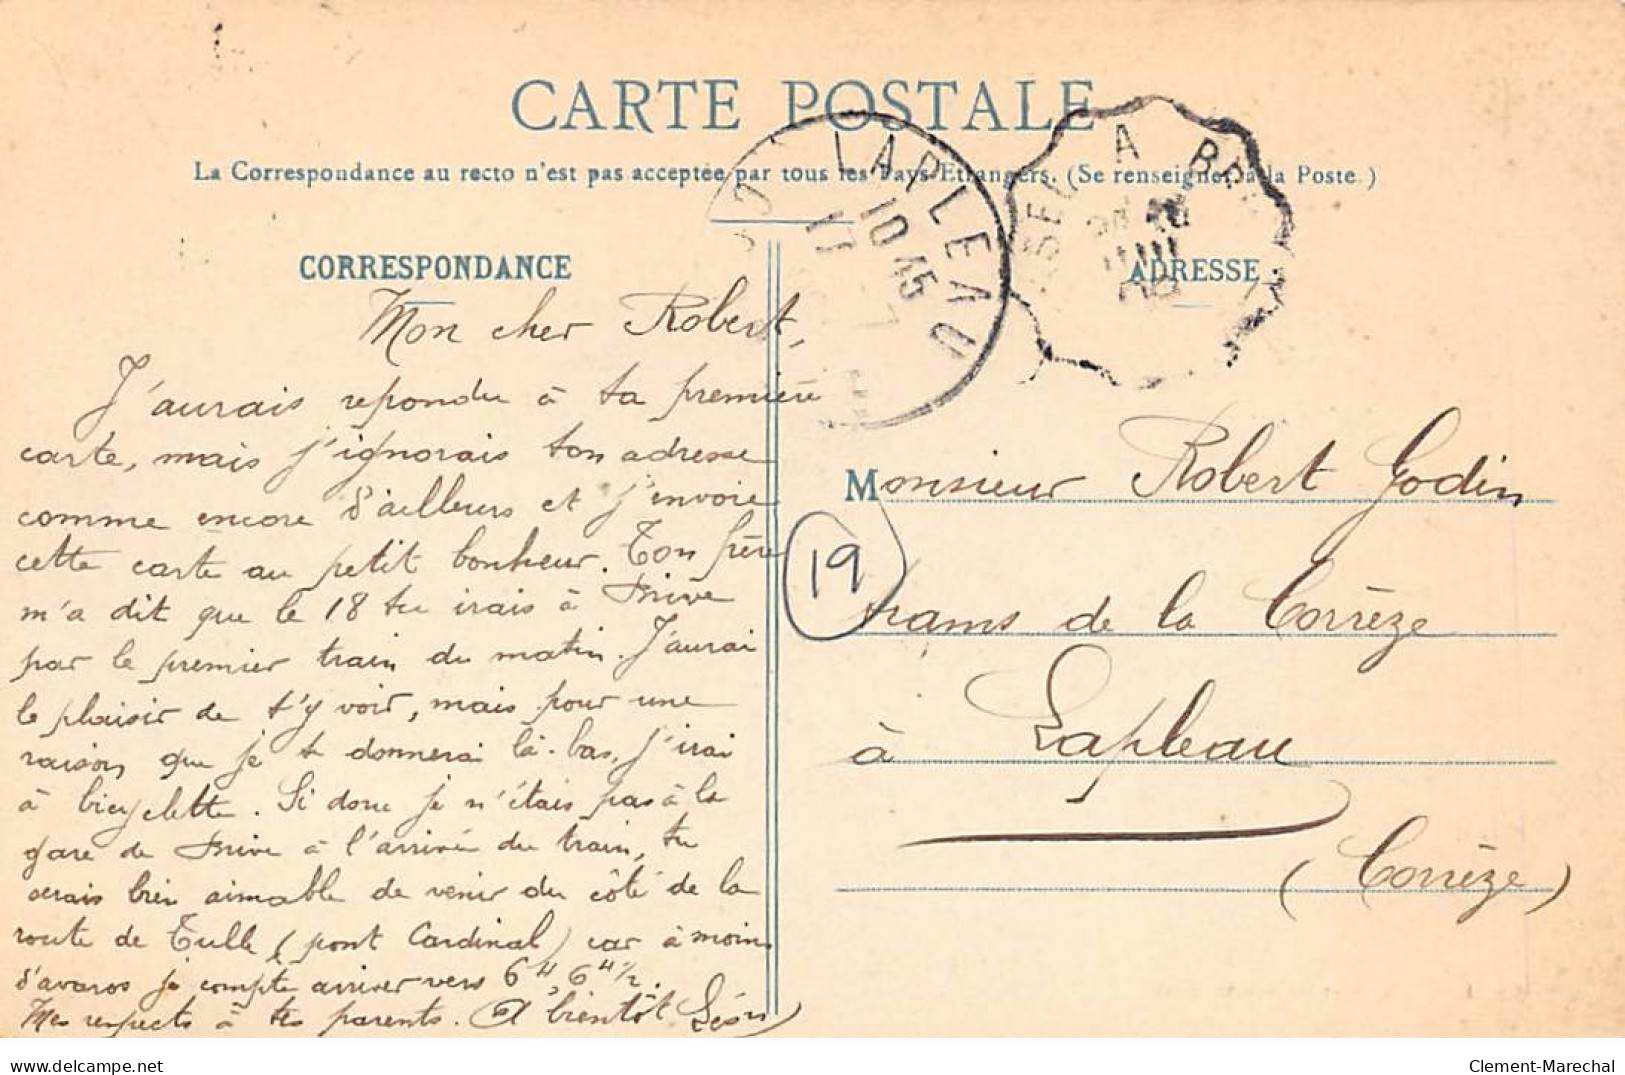 CARTE POSTALE
La Correspondance au recto n'est pas acceptée par tous les Pays Etrangers. (Se renseigner à la Poste.)
CORRESPONDANCE
Mon cher Robert,
J'aurais repondu à ta première
carte, mais j'ignorais ton adresse
comme encore d'ailleurs et j'envoie
cette carte au petit bonheur. Ton frère
m'a dit que le 18 tu irais à Brive
par le premier train du matin. J'aurai
le plaisir de t'y voir, mais pour une
raison que je te donnerai là-bas, j'irai
à bicyclette. Si donc je n'étais pas à la
gare de Brive à l'arrivée du train, tu
serais bien aimable de venir du côté de la
route de Tulle (pont Cardinal) car à moins
d'avaros je compte arriver vers 6H, 6H1/2.
Mes respects à tes parents. A bientôt Léon
LAPLEAU
10 45
17
A
ADRESSE
Monsieur Robert Godin
19
trams de la Corrèze
à Lapleau
(Corrèze)
delcampe.net
Clement-Marechal